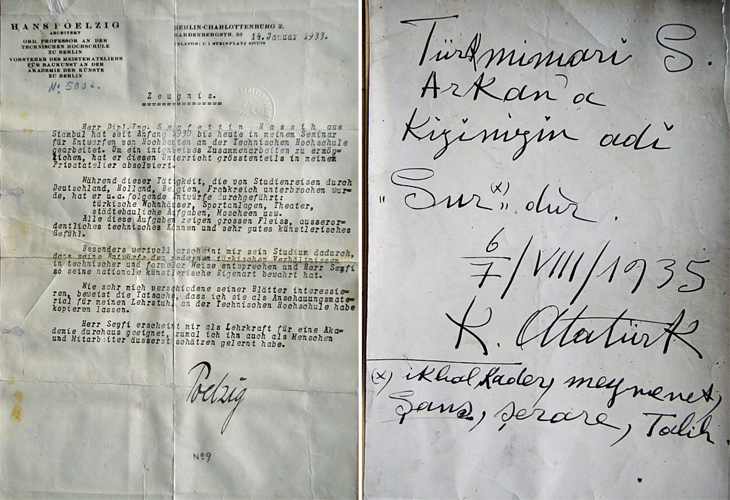 HANS POELZIG
ARCHITEKT
ORD. PROFESSOR AN DER
TECHNISCHEN HOCHSCHULE
ZU BERLIN
VORSTEHER DES MEISTERATELIERS
FÜR BAUKUNST AN DER
AKADEMIE DER KÜNSTE
ZU BERLIN
BERLIN-CHARLOTTENBURG 2,
HARDENBERGSTR. 33 14. Januar 1933.
TELEFON: C 1 STEINPLATZ
Zeugnis.
Herr Dipl.Ing. Seyfettin Nassih aus
Stambul hat seit Anfang 1930 bis heute in meinem Seminar
für Entwerfen von Hochbauten an der Technischen Hochschule
gearbeitet. Um ein intensives Zusammenarbeiten zu ermög-
lichen, hat er diesen Unterricht grösstenteils in meinem
Privatatelier absolviert.
Während dieser Tätigkeit, die von Studienreisen durch
Deutschland, Holland, Belgien, Frankreich unterbrochen wur-
de, hat er u.a. folgende Entwürfe durchgeführt:
türkische Wohnhäuser, Sportanlagen, Theater,
städtebauliche Aufgaben, Moscheen usw.
Alle diese Aufgaben zeigen grossen Fleiss, ausseror-
dentliches technisches Können und sehr gutes künstlerisches
Gefühl.
Besonders wertvoll erscheint mir sein Studium dadurch,
dass seine Entwürfe den modernen türkischen Verhältnissen
in technischer und formeller Weise entsprechen und Herr Seyfi
so seine nationale künstlerische Eigenart bewahrt hat.
Wie sehr mich verschiedene seiner Blätter interessie-
ren, beweist die Tatsache, dass ich sie als Anschauungsmate-
rial für meinen Lehrstuhl an der Technischen Hochschule habe
kopieren lassen.
Herr Seyfi erscheint mir als Lehrkraft für eine Aka-
demie durchaus geeignet, zumal ich ihn auch als Menschen
und Mitarbeiter äusserst schätzen gelernt habe.
Poelzig
No 9
Türk mimari S.
Arkan'a
Kiginizin adi
"Sur(x)" dür.
6/7/VIII/1935
K. Atatürk
(x) ikbal, kader, meymenet,
Şans, şerare, Talih